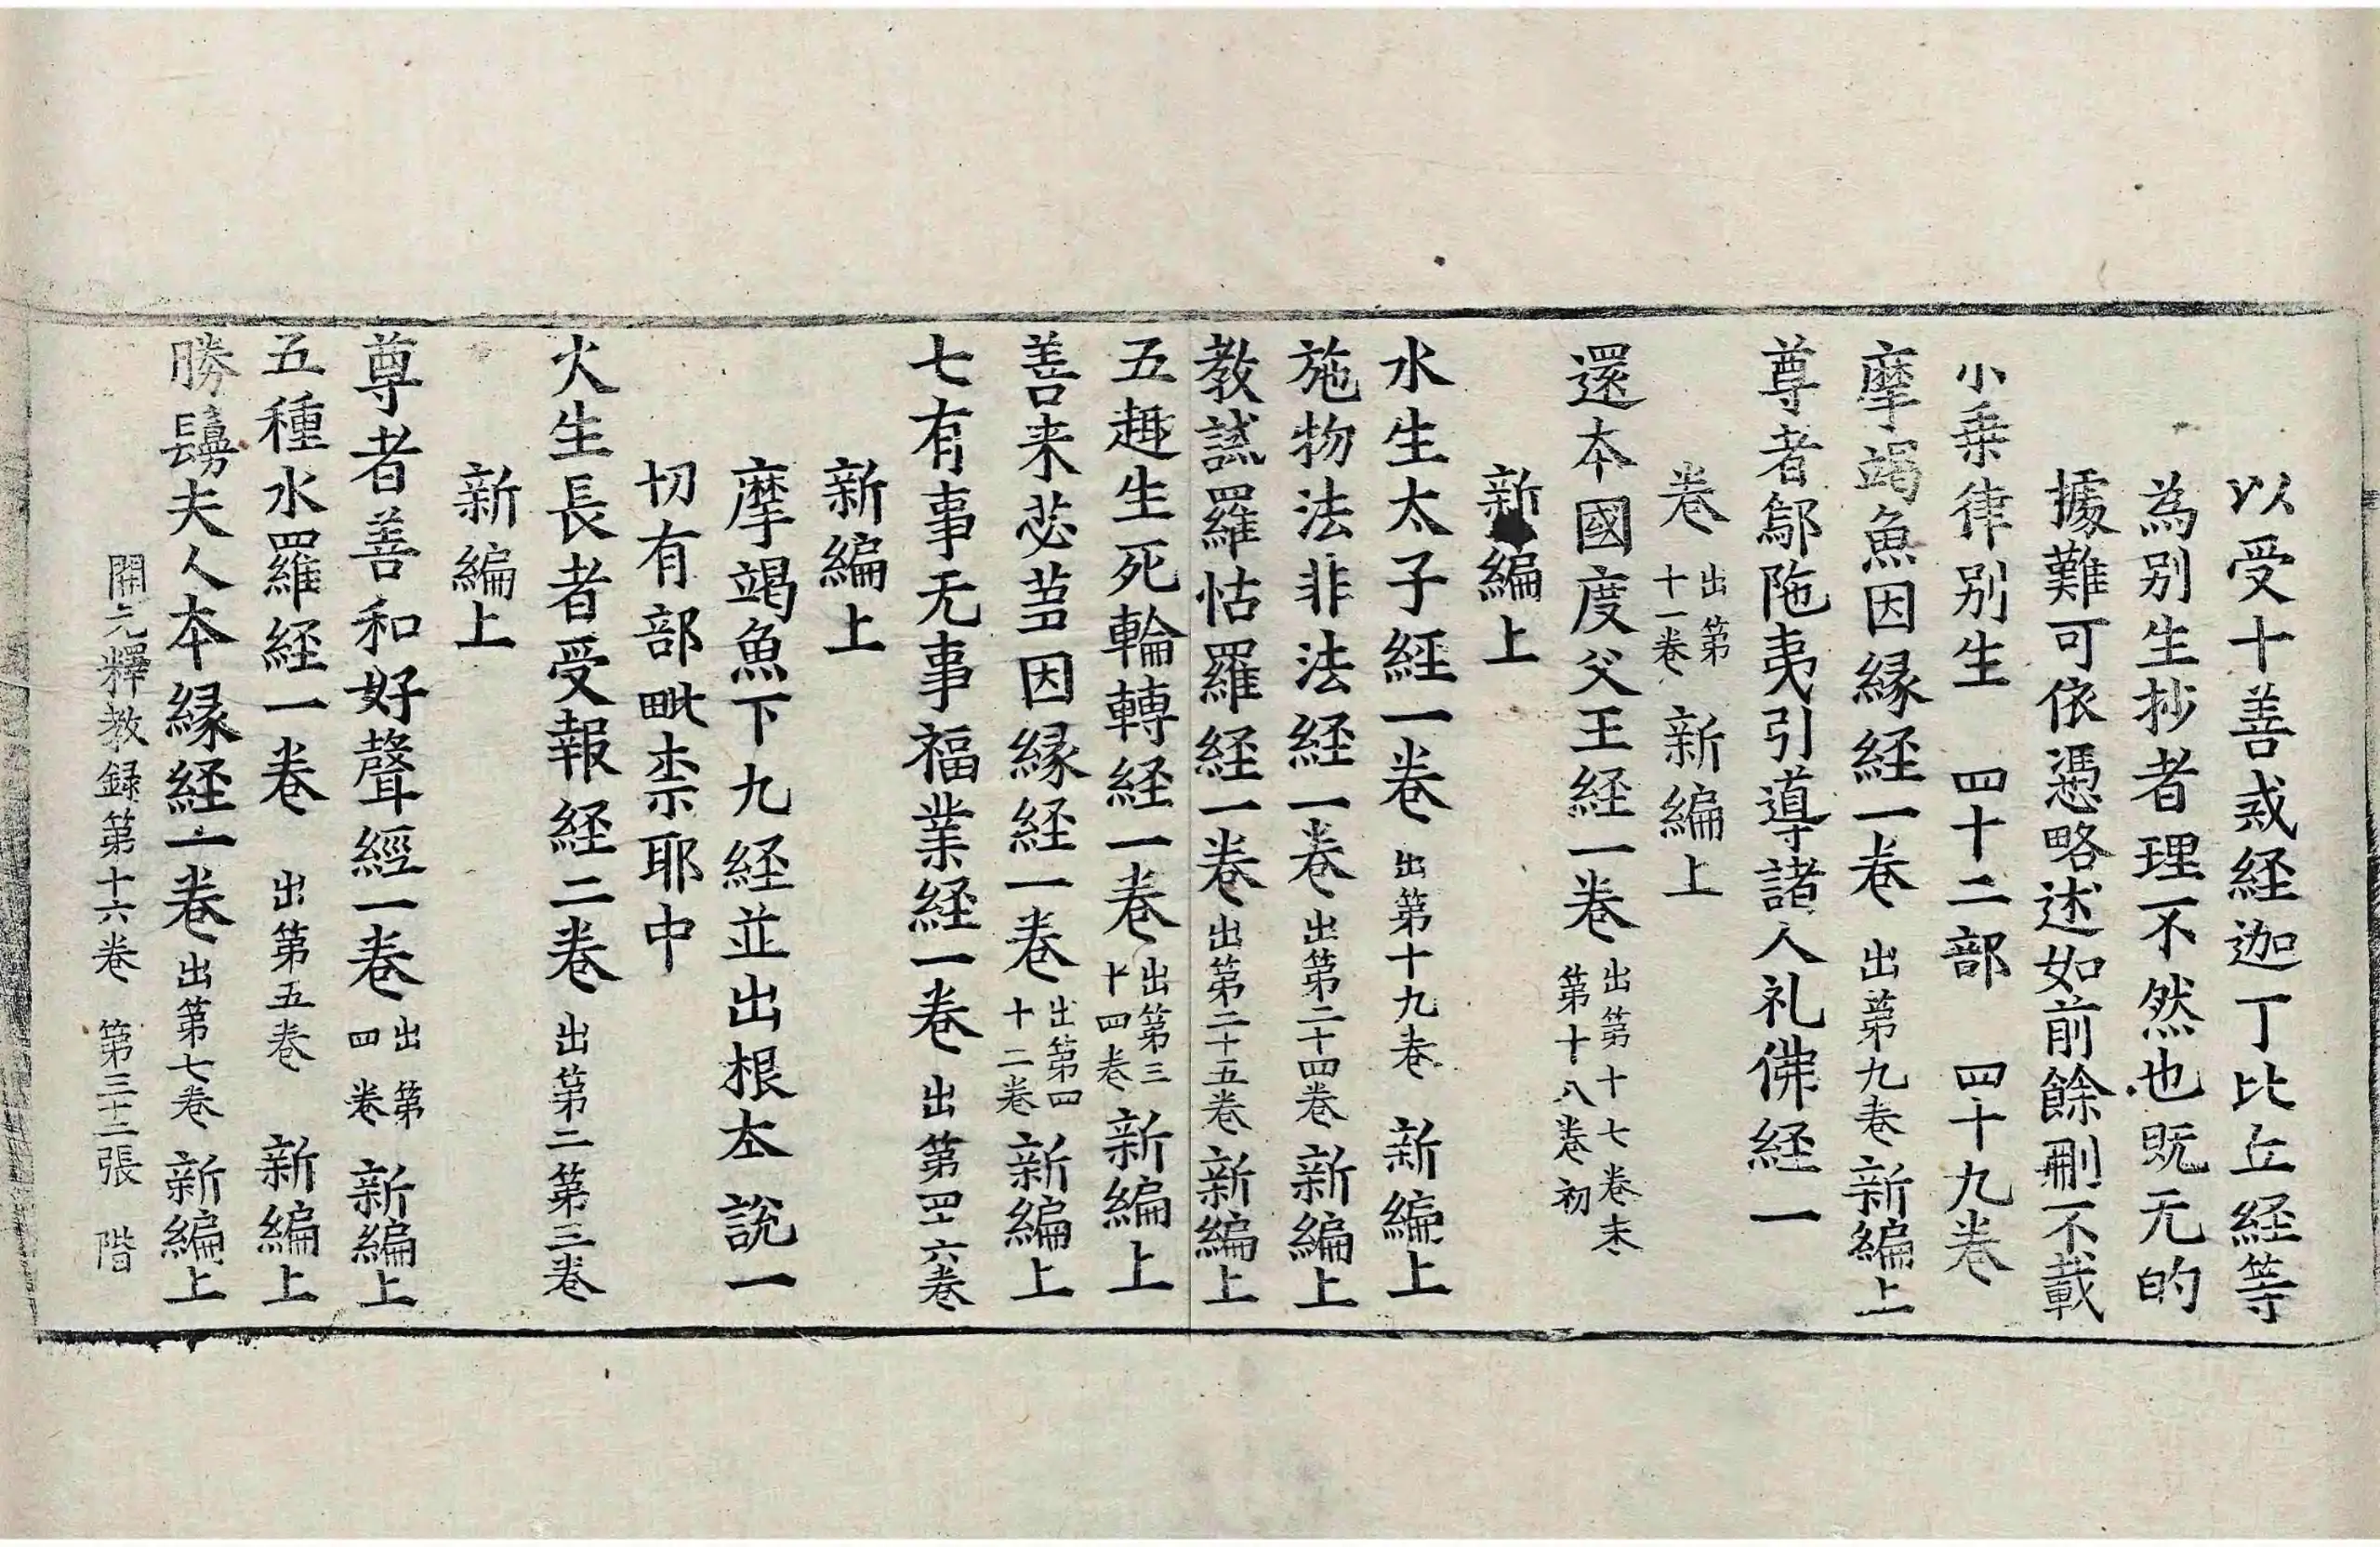 以受十善戒経迦丁比丘経等
為别生抄者理不然也既无的
據難可依憑略述如前餘刪不載
小乗律别生　四十二部　四十九卷
摩竭魚因縁経一卷　出第九卷　新編上
尊者鄔陁夷引導諸人礼佛経一
卷　出第十一卷　新編上
還本國度父王経一卷　出第十七卷末第十八卷初
新編上
水生太子經一卷　出第十九卷　新編上
施物法非法経一卷　出第二十四卷　新編上
教誡羅怙羅経一卷　出第二十五卷　新編上
五趣生死輪轉経一卷　出第三十四卷　新編上
善来苾蒭因縁経一卷　出第四十二卷　新編上
七有事无事福業経一卷　出第四十六卷
新編上
摩竭魚下九経並出根夲說一
切有部毗柰耶中
火生長者受報経二卷　出第二第三卷
新編上
尊者善和好聲經一卷　出第四卷　新編上
五種水羅経一卷　出第五卷　新編上
勝鬘夫人本縁経一卷　出第七卷　新編上
開元釋教録第十六卷　第三十二張　階